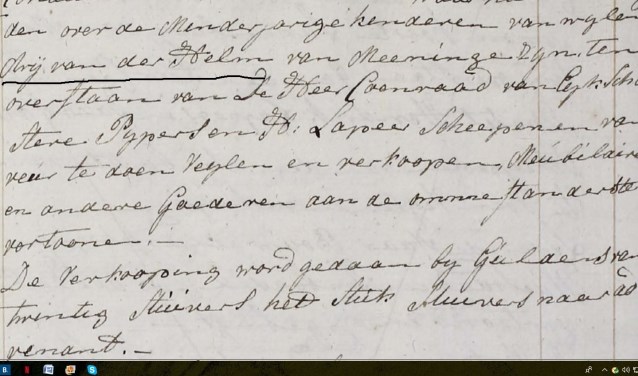 den over de Minderjarige kenderen van wyle
Arij van der Helm van Meeninge Zyn, ten
overstaan van De Heer Coenraad van Eyk Scho
stere Pypers en H: Lapeer Scheepenen van
veur te doen Veylen en verkoopen, Meubilaire
en andere Goederen aan de omme standers te
vortoone. —
De Verkooping word gedaan by Guldens van
twintig Stuivers het Stuk Stuivers naar ad
venant. —